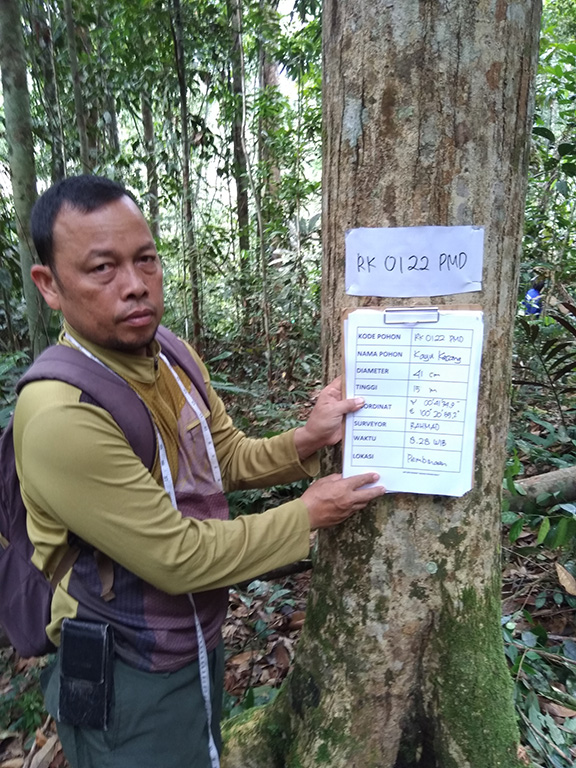 RK 0122 PMD
KODE POHON RK 0122 PMD
NAMA POHON Kayu Kacang
DIAMETER 41 cm
TINGGI 15 m
KOORDINAT
SURVEYOR RAHMAD
WAKTU WIB
LOKASI